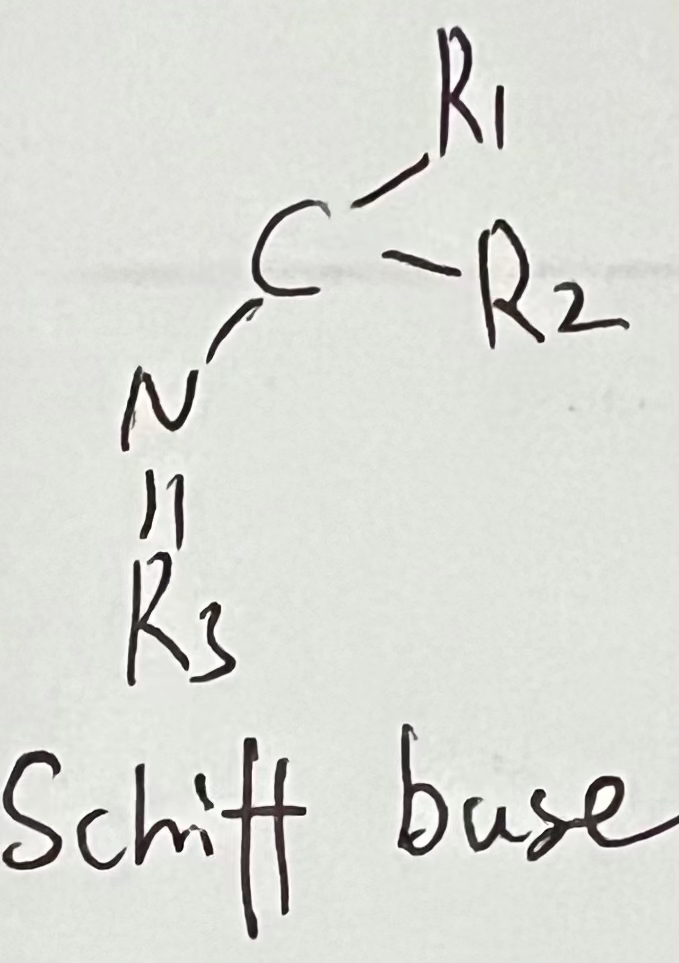 R1
C
R2
N
R3
Schiff base